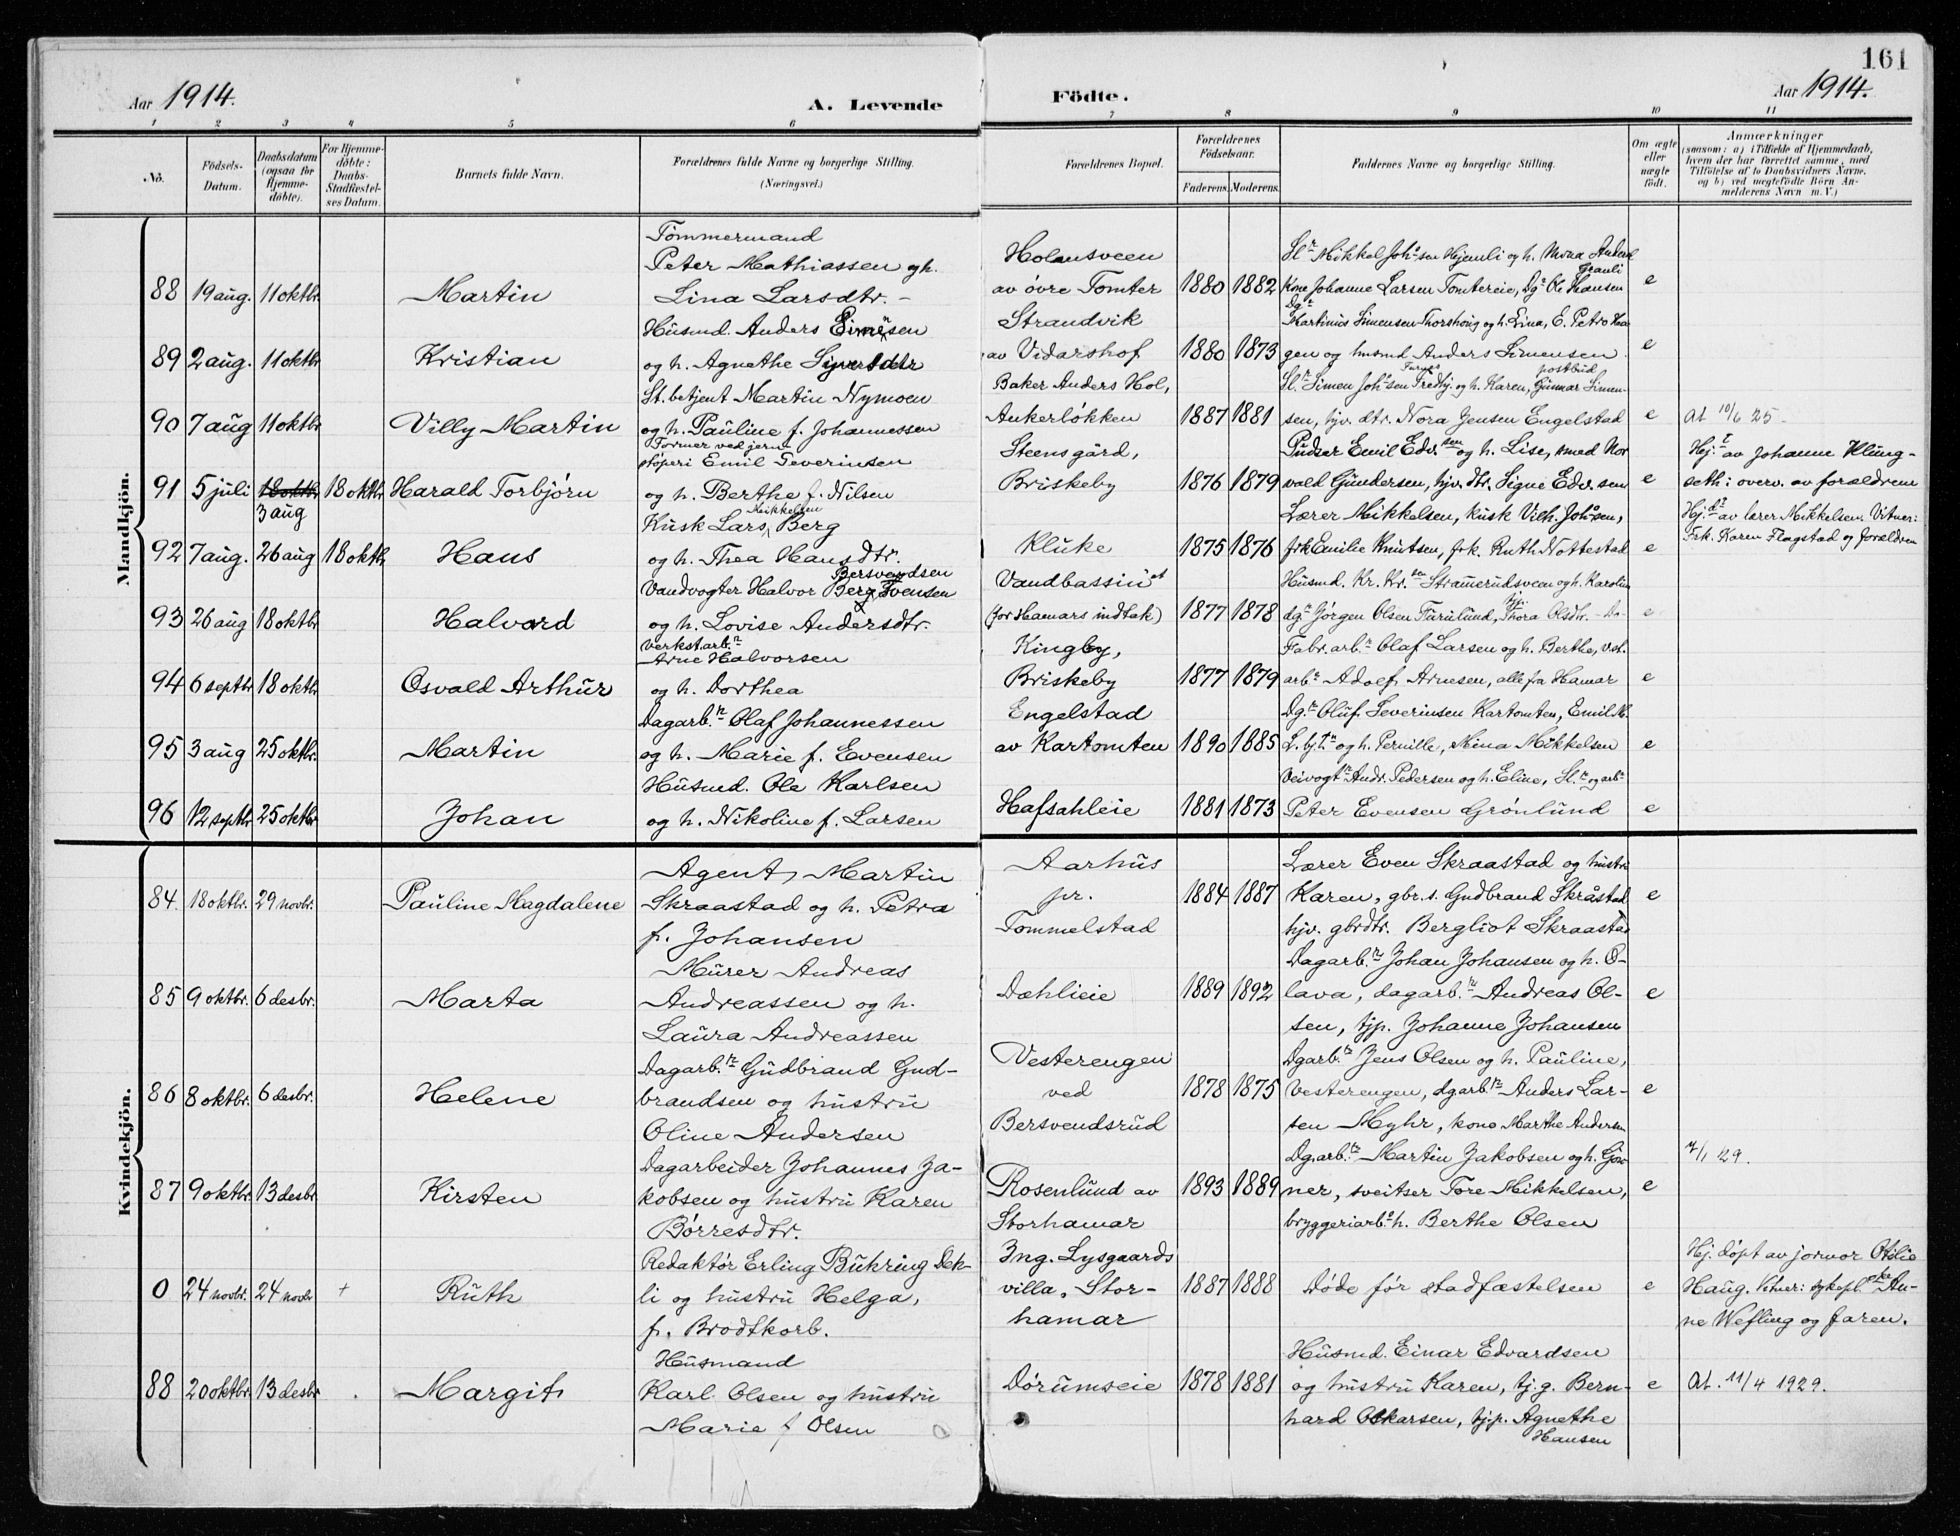 161
Aar 1914.
A. Levende Födte.
Aar 1914.
1 2 3 4 5 6 7 8 9 10 11
No.
Födsels-Datum.
Daabsdatum (ogsaa for Hjemmedöbte).
For Hjemmedöbte: Daabs-Stadfæstelses Datum.
Barnets fulde Navn.
Forældrenes fulde Navne og borgerlige Stilling. (Næringsvei.)
Forældrenes Bopæl.
Forældrenes Födselsaar.
Faderens. Moderens.
Faddernes Navne og borgerlige Stilling.
Om ægte eller uægte født.
Anmærkninger
(saasom: a) i Tilfælde af Hjemmedaab, hvem der har forrettet samme, med Tilföielse af to Daabsvidners Navne. og b) ved uægtefödte Börn Anmelderens Navn m. V.)
Mandkjön.
88 19 aug. 11 oktbr. Martin
Tömmermand
Peter Mathiassen og h.
Lina Larsdtr. -
Holensveen
av övre Tomter
1880 1882
Sl.r Mikkel Joh.sen Hjemli og h.
kone Johanne Larsen Tomtereie, Dg.r Ole Hansen
Granli
e
89 2 aug. 11 oktbr Kristian
Husmd. Anders Simensen
og h. Agnethe Syversdtr
Strandvik
av Vidarshof
1880 1873
Dg.r
Martinus Simensen Thorshoug og h. Lina, E. Petro Haa
gen og husmd Anders Simensen.
e
90 7 aug 11 oktbr Villy Martin
St. betjent Martin Nymoen
og h. Pauline f. Johannessen
Baker Anders Hol,
Ankerlökken
1887 1881
Sl.r Simen Joh.sen og h. Karen, Gunnar Simen-
postbud
sen, hjv. dtr. Nora Jensen Engelstad
e
At 10/6 25 -
91 5 juli 18 oktbr 3 aug 18 oktbr Harald Torbjörn
Former ved jern-
stöperi Emil Severinsen
og h. Berthe f. Nilsen
Steensgård,
Briskeby
1876 1879
Pudser Emil Edv.sen og h. Lise, smed Nor
vald Gundersen, hjv. dtr. Signe Edv.sen
e
Hj. av Johanne Klung-
seth: overv. av forældrene
92 7 aug. 26 aug 18 oktbr Hans
Mikkelsen
Kusk Lars Berg
og h. Thea Hansdtr.
Kluke
1875 1876
Lærer Mikkelsen, kusk Vilh. Joh.sen,
frk Emilie Knutsen, frk. Ruth Nottestad
e
Hj. d. av lærer Mikkelsen. Vitner:
Frk. Karen Flagstad og forældren
93 26 aug 18 oktbr. Halvard
Bersvendsen
Vandvogter Halvor Berg Svensen
og h. Lovise Andersdtr.
Vandbassinet
(for Hamars indtak)
1877 1878
Husmd. Kr. Kr.sen Strammerudsveen og h. Karoline
dg.r Jörgen Olsen Furulund, tjp. Thora Olsdtr. - Do -
e
94 6 septbr 18 oktbr. Osvald Arthur
Verkst.arb.r
Arne Halvorsen
og h. Dorthea
Kingby,
Briskeby
1877 1879
Fabr. arb.r Olaf Larsen og h. Berthe, vst.
arb.r Adolf Arnesen, alle fra Hamar
e
95 3 aug 25 oktbr. Martin
Dagarb.r Olaf Johannessen
og h. Marie f. Evensen
Engelstad
av Kartomten
1890 1885
Dg.r Oluf Severinsen Kartomten, Emil M.
og h. Pernille, Mina Mikkelsen
e
96 12 septbr 25 oktbr Johan
Husmd. Ole Karlsen
og h. Nikoline f. Larsen
Hafsahleie
1881 1873
Veivogt.r Andr. Pedersen og h. Eline, Sl.r og arb.r
Peter Evensen Grönlund
e
Kvindekjön.
84. 18 oktbr. 29 novbr. Pauline Magdalene
Agent, Martin
Skraastad og h. Petra
f. Johansen
Aarhus
pr.
Tommelstad
1884 1887
Lærer Even Skraastad og hustru
Karen, gbr.s. Gudbrand Skråstad
hjv. gbrdtr. Bergliot Skraastad
e
85 9 oktbr. 6 desbr. Marta
Murer Andreas
Andreassen og h.
Laura Andreassen
Dæhlieie
1889 1892
Dagarb.r Johan Johansen og h. O-
lava, dagarb.r Andreas Ol-
sen, tjp. Johanne Johansen
e
86 8 oktbr. 6 desbr. Helene
Dagarb.r Gudbrand Gud-
brandsen og hustru
Oline Andersen
Vesterengen
ved
Bersvendsrud
1878 1875
Dgarb.r Jens Olsen og h. Pauline,
Vesterengen, dgarb.r Anders Lar-
sen Myhr, kone Marthe Andersen
e
87 9 oktbr. 13 desbr Kirsten
Dagarbeider Johannes Ja-
kobsen og hustru Karen
Börresdtr.
Rosenlund av
Storhamar
1893 1889
Dg.arb.r Martin Jakobsen og h. Gun
ner, sveitser Tore Mikkelsen,
bryggeriarb. h. Berthe Olsen
e
29.
0 24 novbr. 24 novbr + Ruth
Redaktör Erling Bühring Dek-
li og hustru Helga,
f. Brodtkorb.
Ing. Lysgaards
villa, Stor-
hamar
1887 1888
Döde för stadfæstelsen
e
Hj. döpt av jormor Otilie
Haug. Vitner: sykepl.ske An-
ne Wefling og faren.
88 20 oktbr. 13 desbr Margit
Husmand
Karl Olsen og hustru
Marie f Olsen
Dörumseie
1878 1881
Husmd. Einar Edvardsen
og hustru Karen, tj.g. Bern-
hard Oskarsen, tjp. Agnethe
Hansen
e
At. 11/4 1929.